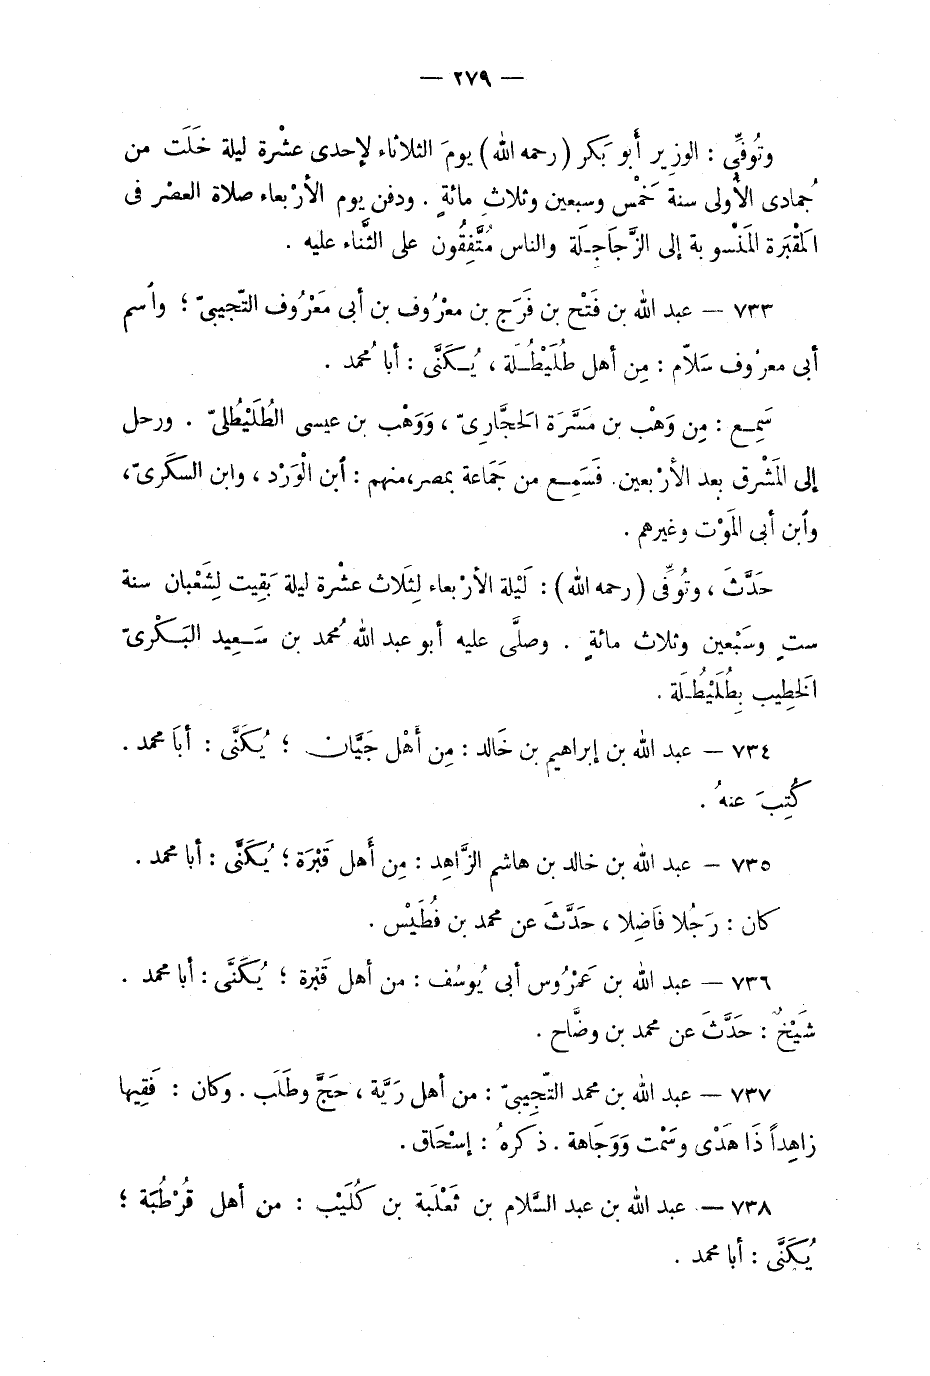 — ٢٧٩ —
وتُوفِّى : الوزير أبو بَكر ( رحمه الله ) يومَ الثلاثاء لإحدى عشْرة ليلة خَلَت من
جُمادى الأولى سنة خَمْس وسبعين وثلاثِ مائةٍ . ودفن يوم الأرْبعاء صلاة العصْر فى
المَقْبَرة المَنْسوبة إلى الزَّجَاجِلَة والناس مُتَّفِقُون على الثَّناء عليه .
٧٣٣ — عبد الله بن فَتْح بن فَرَج بن معْرُوف بن أبى مَعْرُوف التّجيبىّ ؛ وٱسم
أبى معرْوف سَلاّم : مِن أهل طُلَيْطُلَة ، يُكَنَّى : أبا مُحمد .
سَمِع : مِن وَهْب بن مَسَّرَة الحجَّارِىّ ، وَوَهْب بن عيسى الطُلَيْطُلىّ . ورحل
إلى المَشْرق بعد الأرْبعين. فَسَمِع من جَمَاعة بمصر،منهم : ٱبن الْوَرْد ، وابن السكَرىّ ،
وٱبن أبى المَوْت وغيرهم .
حَدَّثَ ، وتُوفِّى ( رحمه الله ) : لَيْلة الأرْبعاء لِثَلاث عشْرة ليلة بَقِيت لِشَعْبان سنة
ستٍ وسَبْعين وثلاث مائةٍ . وصلَّى عليه أبو عبد الله مُحمد بن سَعِيد البَكْرىّ
الخَطِيب بِطُلَيْطُلَة .
٧٣٤ — عبد الله بن إبراهيم بن خَالد : مِن أَهْل جَيَّان ؛ يُكَنَّى : أبَا محمد .
كُتِبَ عنهُ .
٧٣٥ — عبد الله بن خالد بن هاشم الزَّاهِد : مِن أَهل قَبْرَة ؛ يُكَنَّى : أبا محمد .
كان : رَجُلا فَاضِلا ، حَدَّثَ عن محمد بن فُطَيْس .
٧٣٦ — عبد الله بن عَمْرُوس أبى يُوسُف : من أهل قَبْرة ؛ يُكَنَّى : أبا محمد .
شَيْخٌ : حَدَّثَ عن محمد بن وضَّاح .
٧٣٧ — عبد الله بن محمد التّجِيبىّ : من أهل رَيَّة ، حَجَّ وطَلَب . وكان : فَقِيها
زاهِداً ذَا هَدْى وسَمْت وَوَجَاهة . ذكرهُ : إسْحَاق .
٧٣٨ — عبد الله بن عبد السَّلام بن ثَعْلَبة بن كُلَيْب : من أهل قُرْطُبَة ؛
يُكَنَّى : أبا محمد .